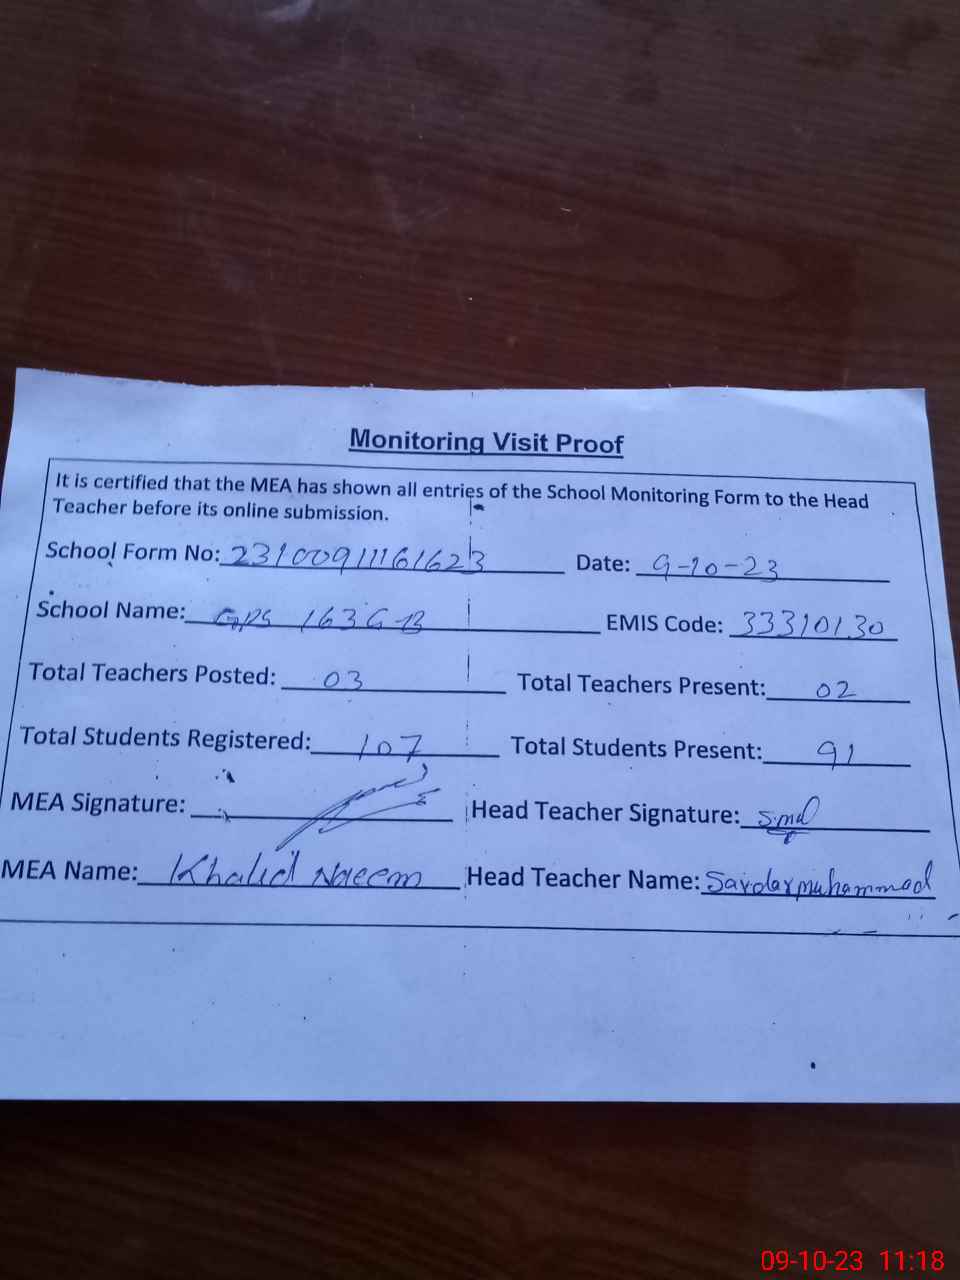 Monitoring Visit Proof
It is certified that the MEA has shown all entries of the School Monitoring Form to the Head
Teacher before its online submission.
School Form No: 23100911161623 Date: 9-10-23
School Name: GPS 163 GB EMIS Code: 33310130
Total Teachers Posted: 03 Total Teachers Present: 02
Total Students Registered: 107 Total Students Present: 91
MEA Signature: Head Teacher Signature: Smd
MEA Name: Khalid Naeem Head Teacher Name: Sardar muhammad
09-10-23 11:18